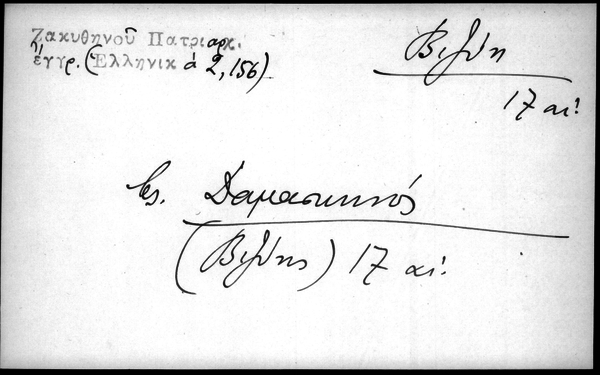 Ζακυθηνοῦ Πατριαρχ.
ἔγγρ. (Ἑλληνικ ά 2, 156)
Βιζύη
17 αι!
Δαμασκηνός
(Βιζύης) 17 αι!